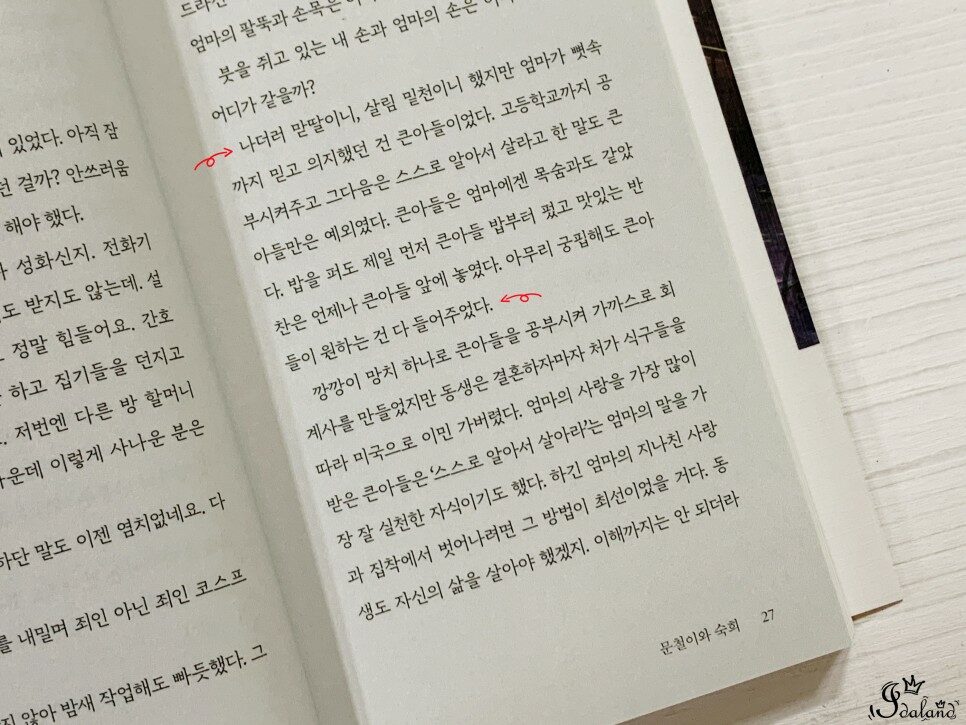 있었다. 아직 잠
걸까? 안쓰러움
해야 했다.
성화신지. 전화기
받지도 않는데. 설
정말 힘들어요. 간호
하고 집기들을 던지고
저번엔 다른 방 할머니
이렇게 사나운 분은
말도 이젠 염치없네요. 다
내밀며 죄인 아닌 죄인 코스프
않아 밤새 작업해도 빠듯했다. 그
엄마의 팔뚝과 손목은
붓을 쥐고 있는 내 손과 엄마의 손은
어디가 같을까?
나더러 맏딸이니, 살림 밑천이니 했지만 엄마가 뼛속
까지 믿고 의지했던 건 큰아들이었다. 고등학교까지 공
부시켜주고 그다음은 스스로 알아서 살라고 한 말도 큰
아들만은 예외였다. 큰아들은 엄마에겐 목숨과도 같았
다. 밥을 퍼도 제일 먼저 큰아들 밥부터 펐고 맛있는 반
찬은 언제나 큰아들 앞에 놓였다. 아무리 궁핍해도 큰아
들이 원하는 건 다 들어주었다.
깡깡이 망치 하나로 큰아들을 공부시켜 가까스로 회
계사를 만들었지만 동생은 결혼하자마자 처가 식구들을
따라 미국으로 이민 가버렸다. 엄마의 사랑을 가장 많이
받은 큰아들은 ‘스스로 알아서 살아라’는 엄마의 말을 가
장 잘 실천한 자식이기도 했다. 하긴 엄마의 지나친 사랑
과 집착에서 벗어나려면 그 방법이 최선이었을 거다. 동
생도 자신의 삶을 살아야 했겠지. 이해까지는 안 되더라
문철이와 숙희 27
Jdaland